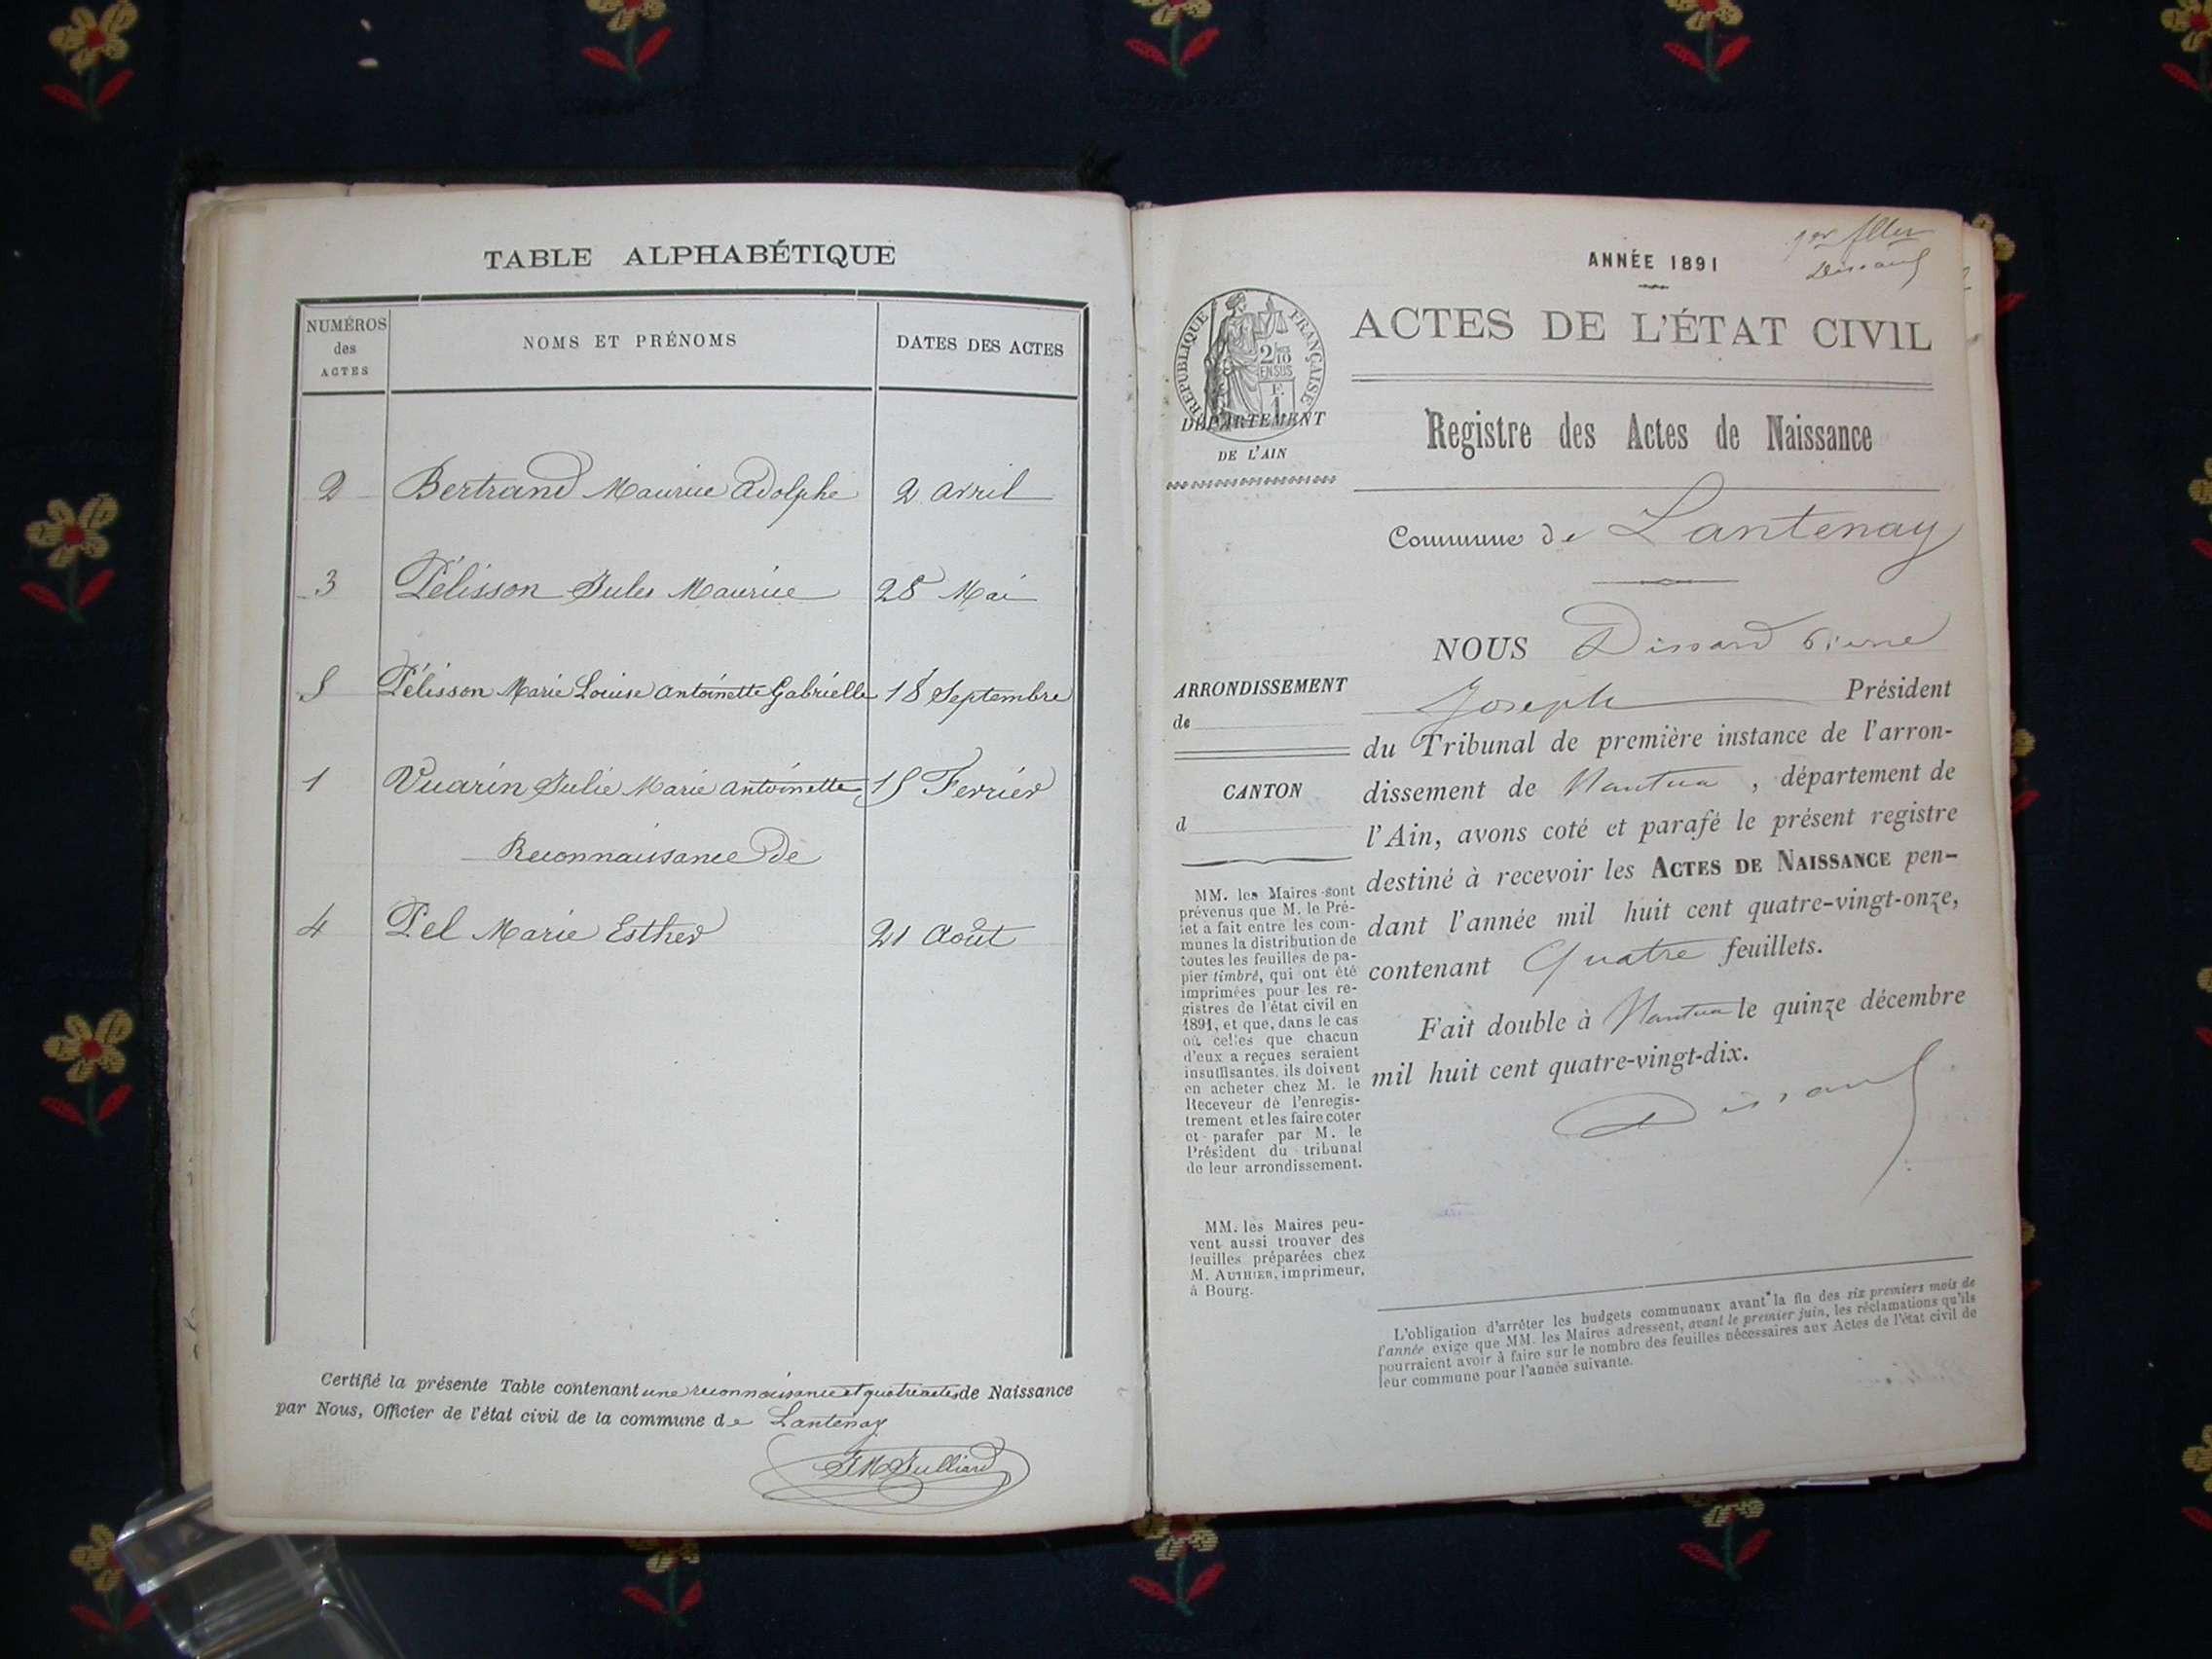 TABLE ALPHABÉTIQUE
NUMÉROS
des
ACTES
NOMS ET PRÉNOMS
DATES DES ACTES
2 Bertrand Maurice Adolphe 2 avril
3 Pélisson Jules Maurice 28 Mai
5 Pélisson Marie Louise Antoinette Gabrielle 18 Septembre
1 Vuarin Julie Marie Antoinette 15 Fevrier
Reconnaissance de
4 Pel Marie Esther 21 Août
Certifié la présente Table contenant une reconnaissance et quatre actes de Naissance
par Nous, Officier de l'état civil de la commune de Lantenay
JM Julliard
1er fllet
Dissard
ANNÉE 1891
RÉPUBLIQUE FRANÇAISE
2/10
EN SUS
F.
1
DÉPARTEMENT
DE L'AIN
ACTES DE L'ÉTAT CIVIL
Registre des Actes de Naissance
Commune de Lantenay
NOUS Dissard Pierre
Joseph Président
du Tribunal de première instance de l'arron-
dissement de Nantua, département de
l'Ain, avons coté et parafé le présent registre
destiné à recevoir les ACTES DE NAISSANCE pen-
dant l'année mil huit cent quatre-vingt-onze,
contenant Quatre feuillets.
Fait double à Nantua le quinze décembre
mil huit cent quatre-vingt-dix.
Dissard
ARRONDISSEMENT
de
CANTON
d
MM. les Maires sont
prévenus que M. le Pré-
fet a fait entre les com-
munes la distribution de
toutes les feuilles de pa-
pier timbré, qui ont été
imprimées pour les re-
gistres de l'état civil en
1891, et que, dans le cas
où celles que chacun
d'eux a reçues seraient
insuffisantes, ils doivent
en acheter chez M. le
Receveur de l'enregis-
trement et les faire coter
et parafer par M. le
Président du tribunal
de leur arrondissement.
MM. les Maires peu-
vent aussi trouver des
feuilles préparées chez
M. AUTHIER, imprimeur,
à Bourg.
L'obligation d'arrêter les budgets communaux avant la fin des six premiers mois de
l'année exige que MM. les Maires adressent, avant le premier juin, les réclamations qu'ils
pourraient avoir à faire sur le nombre des feuilles nécessaires aux Actes de l'état civil de
leur commune pour l'année suivante.